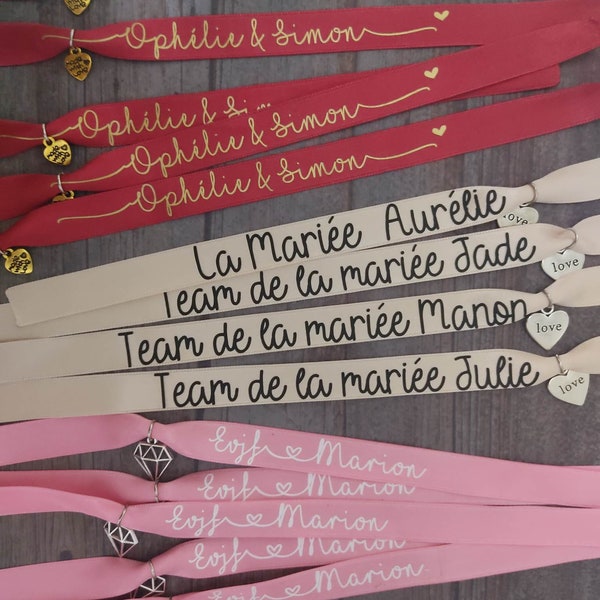 Ophélie & Simon
Ophélie & Si
Ophélie & Simon
Ophélie & Simon
La Mariée Aurélie
Team de la mariée Jade
love
Team de la mariée Manon
love
Team de la mariée Julie
love
Evjf Marion
Evjf Marion
Evjf Marion
Evjf Marion
Evjf Marion